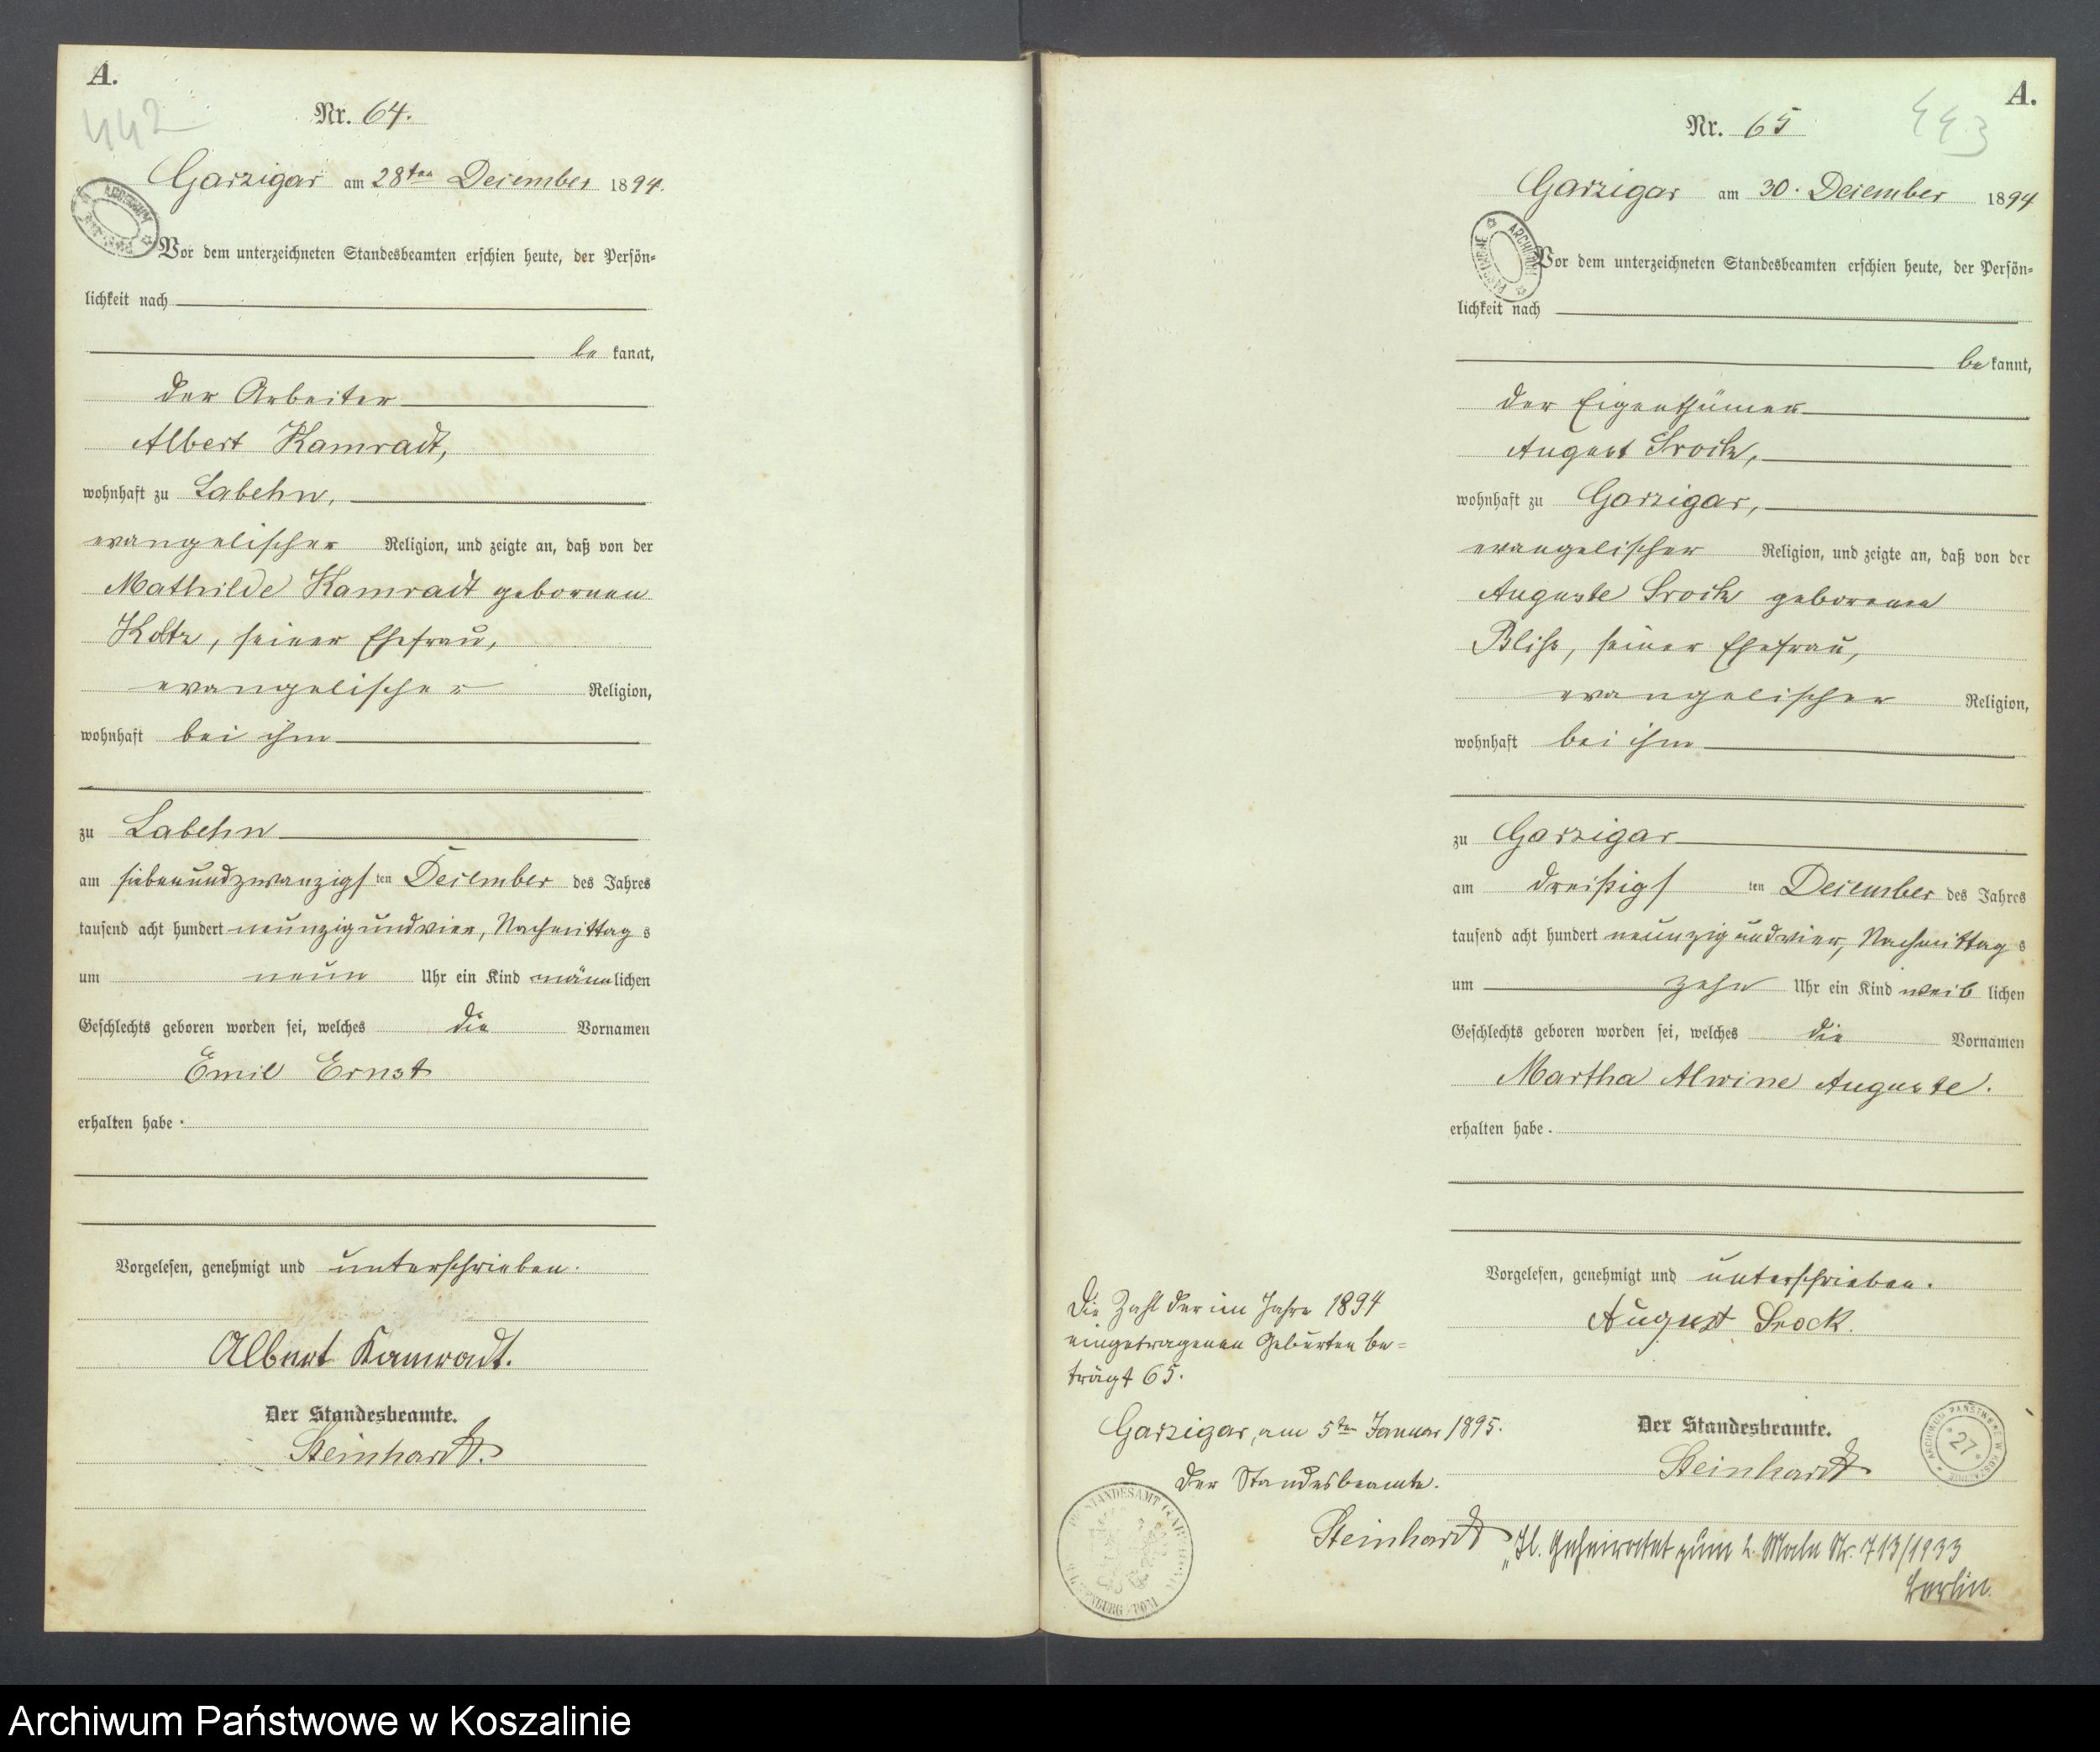 A.
442
Nr. 64.
Garzigar am 28ten Dezember 1894.
Vor dem unterzeichneten Standesbeamten erschien heute, der Persön=
lichkeit nach
be kannt,
der Arbeiter
Albert Kamradt,
wohnhaft zu Labehn,
evangelischer Religion, und zeigte an, daß von der
Mathilde Kamradt gebornen
Koltz, seiner Ehefrau,
evangelischer Religion,
wohnhaft bei ihm
zu Labehn
am siebenundzwanzigsten Dezember des Jahres
tausend acht hundert neunzig und vier, Nachmittags
um neun Uhr ein Kind männlichen
Geschlechts geboren worden sei, welches die Vornamen
Emil Ernst
erhalten habe.
Vorgelesen, genehmigt und unterschrieben.
Albert Kamradt.
Der Standesbeamte.
Steinhardt.
A.
443
Nr. 65
Garzigar am 30. Dezember 1894
Vor dem unterzeichneten Standesbeamten erschien heute, der Persön=
lichkeit nach
be kannt,
der Eigenthümer
August Srock,
wohnhaft zu Garzigar,
evangelischer Religion, und zeigte an, daß von der
Auguste Srock geborenen
seiner Ehefrau,
evangelischer Religion,
wohnhaft bei ihm
zu Garzigar
am dreißigsten Dezember des Jahres
tausend acht hundert neunzig und vier, Nachmittags
um zehn Uhr ein Kind weiblichen
Geschlechts geboren worden sei, welches die Vornamen
Martha Alwine Auguste.
erhalten habe.
Vorgelesen, genehmigt und unterschrieben.
August Srock.
Der Standesbeamte.
Steinhardt
Die Zahl der im Jahre 1894
eingetragenen Geburten be=
trägt 65.
Garzigar, am 5ten Januar 1895.
Der Standesbeamte.
Steinhardt
ARCHIWUM PAŃSTWOWE W KOSZALINIE
27
geheiratet zum 2. Male Nr. 713/1933
Berlin.
Archiwum Państwowe w Koszalinie